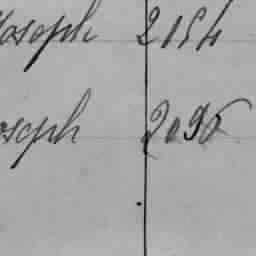 Joseph 2154
Joseph 2096